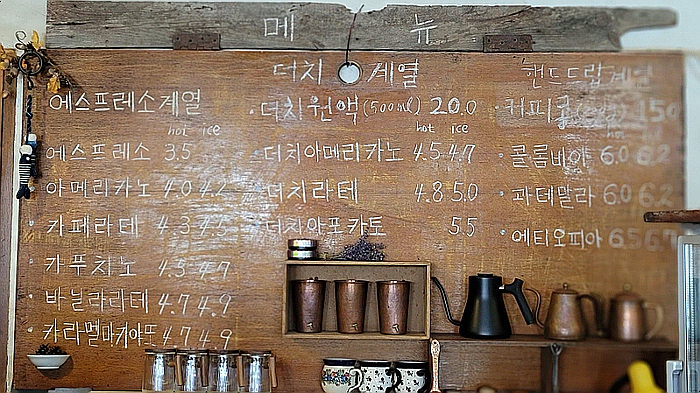 메 뉴
에스프레소계열
hot ice
에스프레소 3.5
아메리카노 4.0 4.2
카페라테 4.3 4.5
카푸치노 4.5 4.7
바닐라라테 4.7 4.9
카라멜마키아또 4.7 4.9
더치 계열
더치원액 (500ml) 20.0
hot ice
더치아메리카노 4.5 4.7
더치라테 4.8 5.0
더치아포카토 5.5
핸드드랍계열
커피콩 15.0
콜롬비아 6.0 6.2
과테말라 6.0 6.2
에티오피아 6.5 6.7